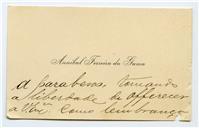 Annibal Ferreira da Gama
a parabenos tomando
a liberdade de offerecer
a V. Ex.ª como lembrança